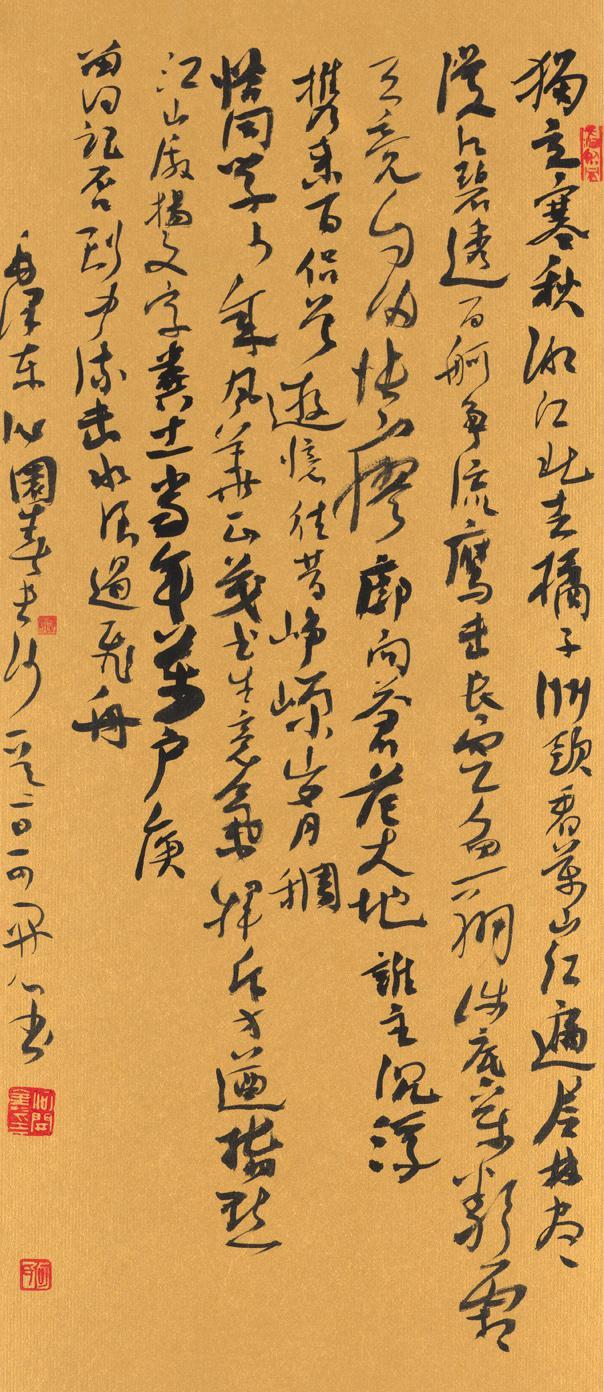 獨立寒秋湘江北去橘子洲頭看萬山红遍层林尽
漫江碧透百舸争流鹰击长空鱼翔浅底萬類霜
天竞自由怅寥廓问苍茫大地誰主沉浮
携来百侣曾遊憶往昔峥嵘岁月稠
恰同学少年风華正茂书生意氣揮斥方遒指點
江山激揚文字糞土当年萬户侯
曾记否到中流击水浪遏飞舟
毛泽东沁園春长沙二〇一四书